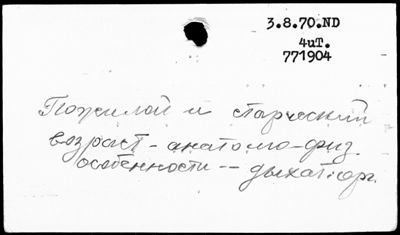 3.8.70.ND
4иТ.
771904
Пожилой и старческий
возраст - анатомо-физ.
особенности -- дыхат. орг.